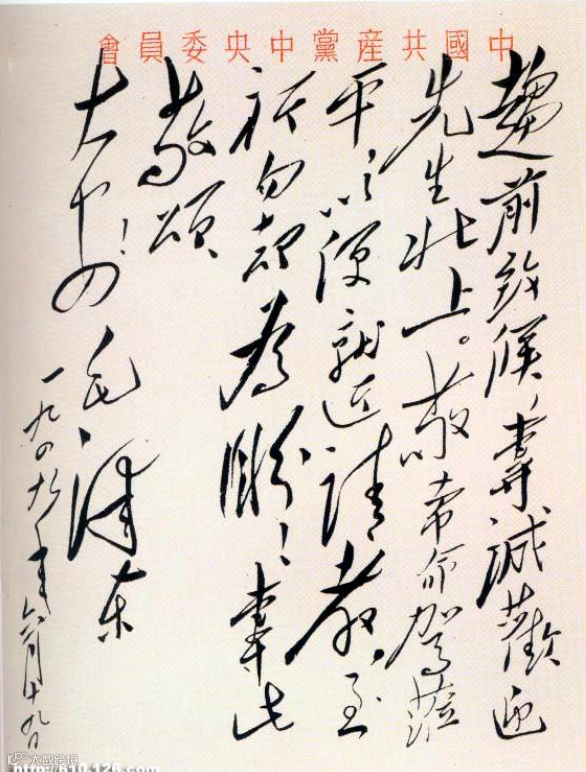 中國共産黨中央委員會
趨前致候,專誠歡迎
先生北上。敬希命駕蒞
平,以便就近請教,至
祈勿却為盼!專此
敬頌
大安!
毛澤東
一九四九年六月十九日
http://610.126.com